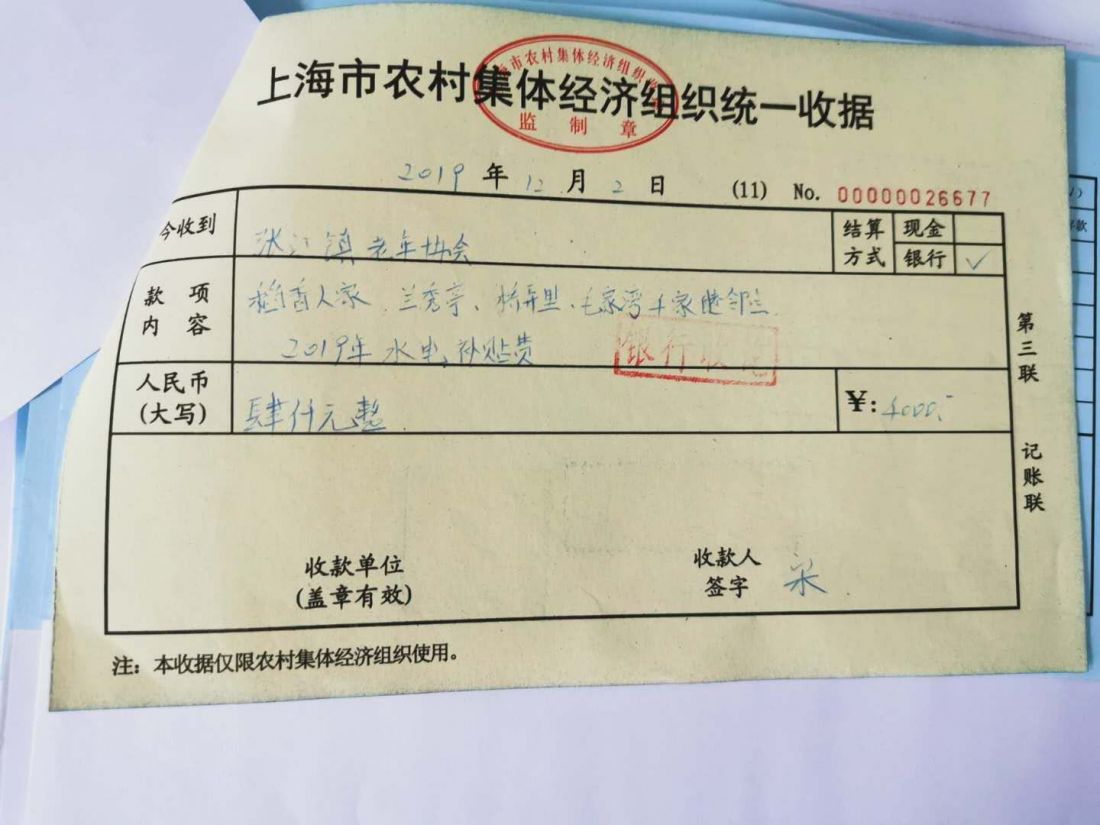 上海市农村集体经济组织统一收据
市农村集体经济组织
监制章
2019 年 12 月 2 日 (11) No. 00000026677
今收到 张江镇老年协会 结算方式 现金 银行 ✓
款项内容 稻香人家、兰秀亭、杨弄里、毛家湾4家睦邻点
2019年水电补贴费
银行收
人民币(大写) 肆仟元整 ¥: 4000.-
第三联 记账联
收款单位 收款人
(盖章有效) 签字
注：本收据仅限农村集体经济组织使用。